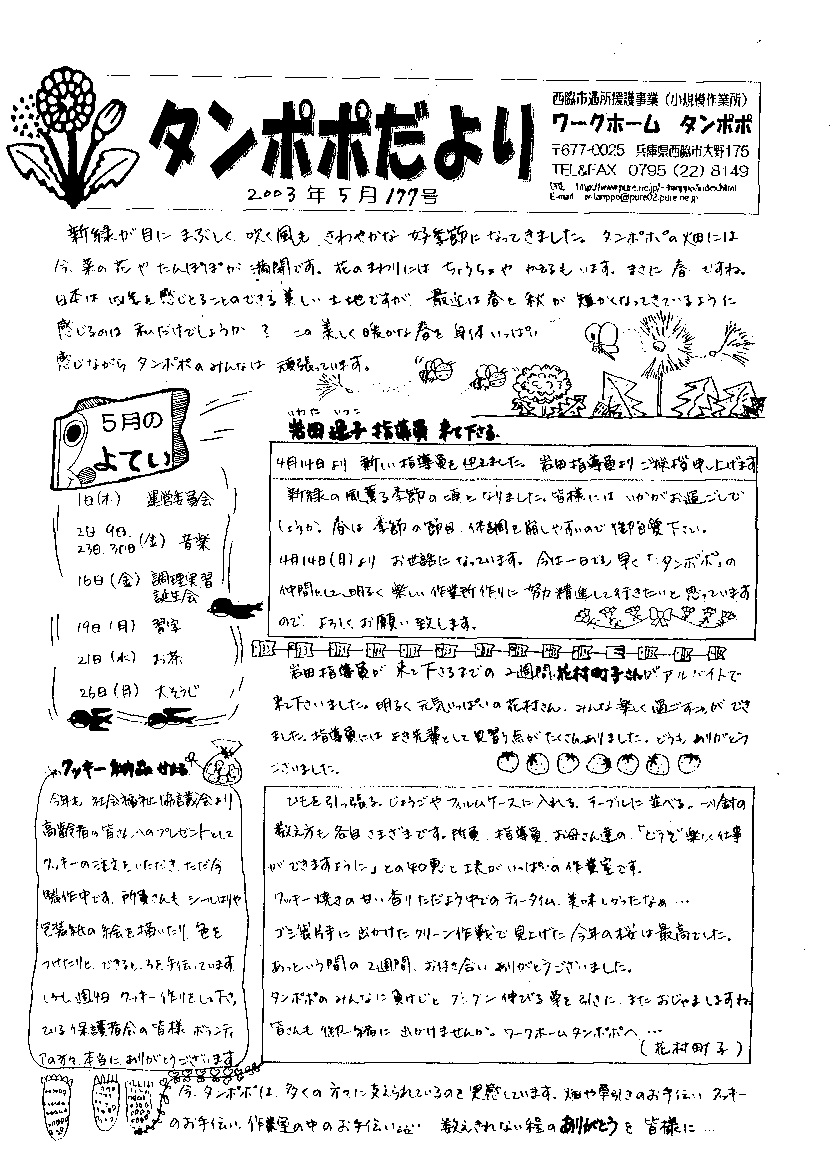 西脇市通所援護事業（小規模作業所）
ワークホーム タンポポ
〒677-0025 兵庫県西脇市大野175
TEL&FAX 0795（22）8149
タンポポだより
2003年5月177号
新緑が目にまぶしく、吹く風も、さわやかな好季節になってきました。タンポポの畑には
今、菜の花やたんぽぽが満開です。花のまわりにはちょうちょや かえるもいます。まさに春ですね。
日本は四季を感じとることのできる美しい土地ですが、最近は春と秋が短かくなってきているように
感じるのは私だけでしょうか？ この美しく暖かな春を身体いっぱい
感じながらタンポポのみんなは頑張っています。
5月の
よてい
1日(木) 運営委員会
2日 9日
23日 30日 音楽
16日(金) 調理実習
誕生会
19日(月) 習字
21日(水) お茶
26日(月) 大そうじ
いわた いつこ
岩田 子指導員 来て下さる
4月14日より 新しい指導員を迎えました。岩田指導員よりご挨拶申し上げます
新緑の風薫る季節の頃となりました。皆様には いかがお過ごしで
しょうか。春は季節の節目、体調を崩しやすいので御自愛下さい。
4月14日(月)より お世話になっています。今は一日でも早く「タンポポ」の
仲間として、明るく楽しい作業所作りに努力精進して行きたいと思っています
ので、よろしくお願い致します。
岩田指導員が来て下さるまでの2週間、花村町子さんがアルバイトで
来て下さいました。明るく元気いっぱいの花村さん、みんな楽しく過ごすことができ
ました。指導員にはよき先輩として見習う点がたくさんありました。どうもありがとう
ございました。
クッキー
今年も 社会福祉協議会より
高齢者の皆さんへのプレゼントとして
クッキーの注文をいただき、ただ今
製作中です。所員さんも シールはりや
包装紙の絵を描いたり、色を
つけたりと、できるところを手伝っています
しかし週4日 クッキー作りをして下さ
ている保護者会の皆様 ボランティ
アの方々、本当にありがとうございます
ひもを引っ張る。じょうごやフィルムケースに入れる。テーブルに並べる。
数え方も各自さまざまです。所員、指導員、お母さん達の、「どうぞ楽しく仕事
ができますように」との知恵と工夫がいっぱいの作業室です。
クッキー焼きの甘い香りただよう中でのティータイム、美味しかったなぁ…
ゴミ袋片手に出かけたクリーン作戦で見上げた今年の桜は最高でした。
あっという間の2週間、お付き合いありがとうございました。
タンポポのみんなに負けじとグングン伸びる草を引きに、またおじゃましますね
皆さんも 出かけませんか。ワークホームタンポポへ…
（花村町子）
今、タンポポは、多くの方々に支えられているのを実感しています。畑や草引きのお手伝い クッキー
のお手伝い、作業室の中のお手伝い 数えきれない程のありがとうを皆様に…